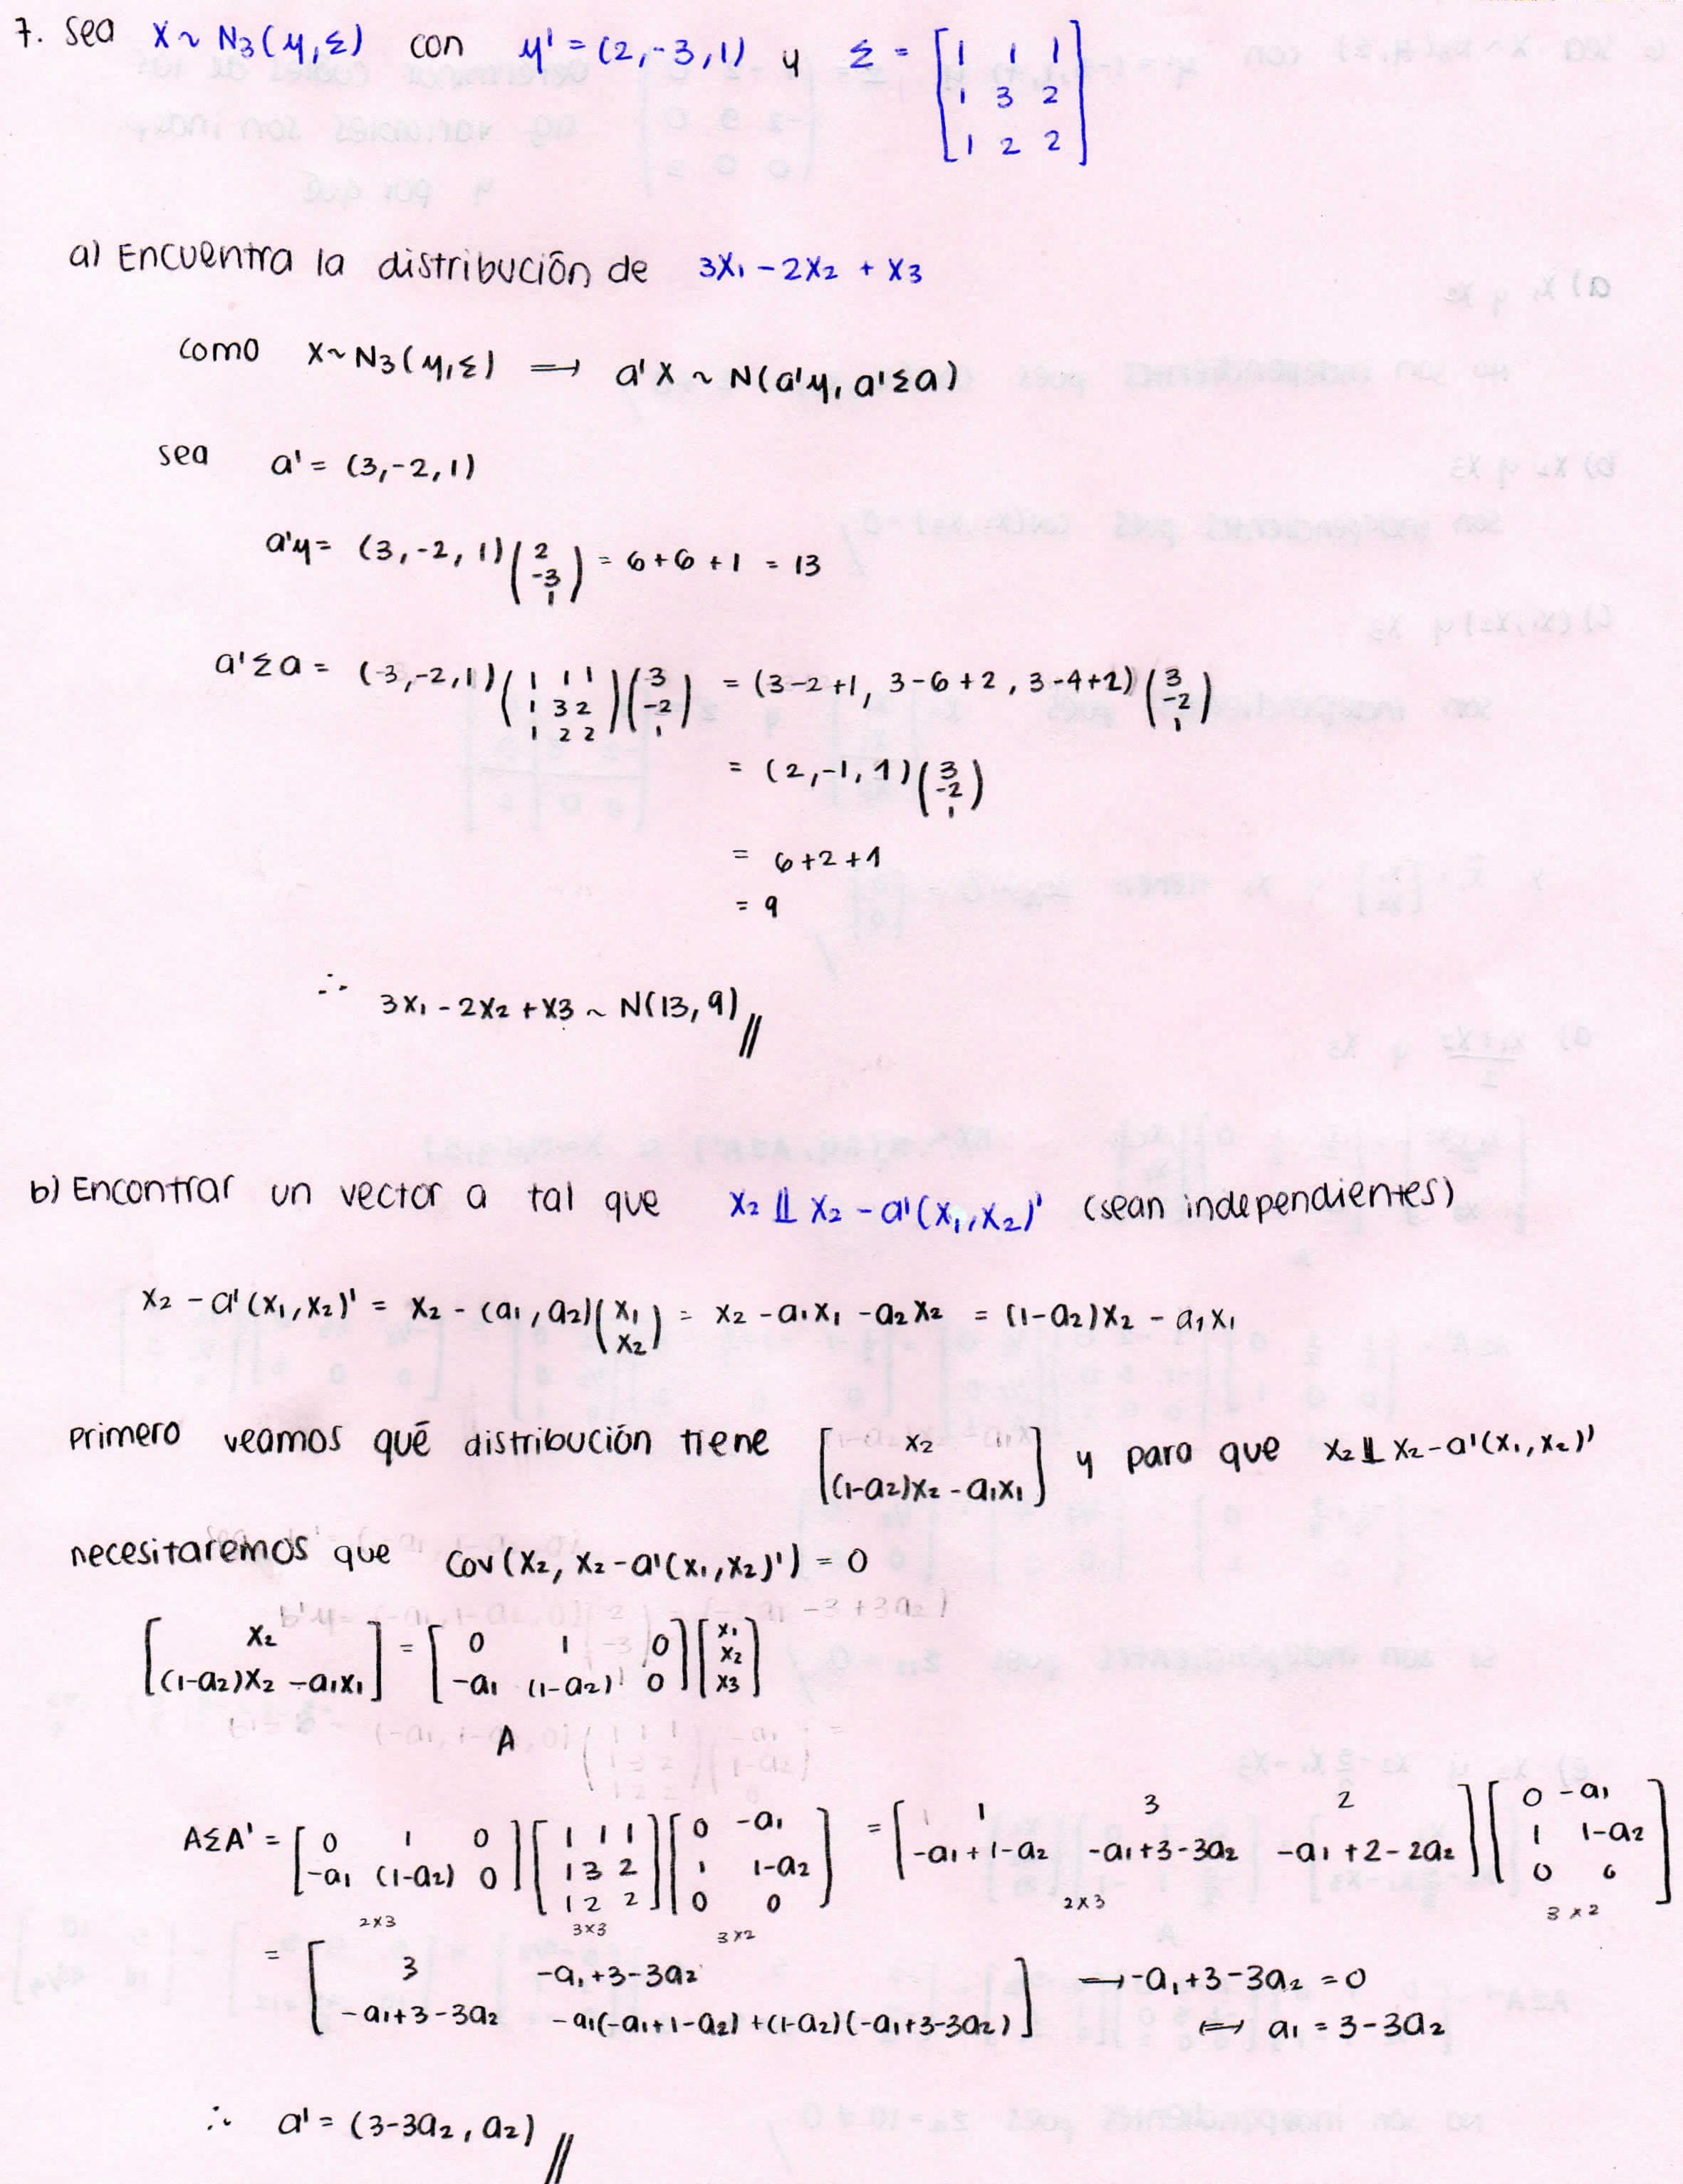 7. Sea X ~ N3(μ,Σ) con μ' = (2,-3,1) y Σ = [1 1 1
1 3 2
1 2 2]
a) Encuentra la distribución de 3X1 - 2X2 + X3
como X ~ N3(μ,Σ) ⟹ a'X ~ N(a'μ, a'Σa)
sea a' = (3,-2,1)
a'μ = (3,-2,1)(2 -3 1) = 6+6+1 = 13
a'Σa = (3,-2,1)(1 1 1 / 1 3 2 / 1 2 2)(3 -2 1) = (3-2+1, 3-6+2, 3-4+2)(3 -2 1)
= (2,-1,1)(3 -2 1)
= 6+2+1
= 9
∴ 3X1 - 2X2 + X3 ~ N(13,9)//
b) Encontrar un vector a tal que X2 ⫫ X2 - a'(X1,X2)' (sean independientes)
X2 - a'(X1,X2)' = X2 - (a1,a2)(X1 X2) = X2 - a1X1 - a2X2 = (1-a2)X2 - a1X1
primero veamos qué distribución tiene [X2 / (1-a2)X2 - a1X1] y para que X2 ⫫ X2 - a'(X1,X2)'
necesitaremos que Cov(X2, X2 - a'(X1,X2)') = 0
[X2 / (1-a2)X2 - a1X1] = [0 1 0 / -a1 (1-a2) 0][X1 X2 X3]
A
AΣA' = [0 1 0 / -a1 (1-a2) 0][1 1 1 / 1 3 2 / 1 2 2][0 -a1 / 1 1-a2 / 0 0] = [1 3 2 / -a1+1-a2 -a1+3-3a2 -a1+2-2a2][0 -a1 / 1 1-a2 / 0 0]
2x3 3x3 3x2 2x3 3x2
= [3 -a1+3-3a2 / -a1+3-3a2 -a1(-a1+1-a2)+(1-a2)(-a1+3-3a2)] ⟹ -a1+3-3a2 = 0
⟺ a1 = 3-3a2
∴ a' = (3-3a2, a2)//